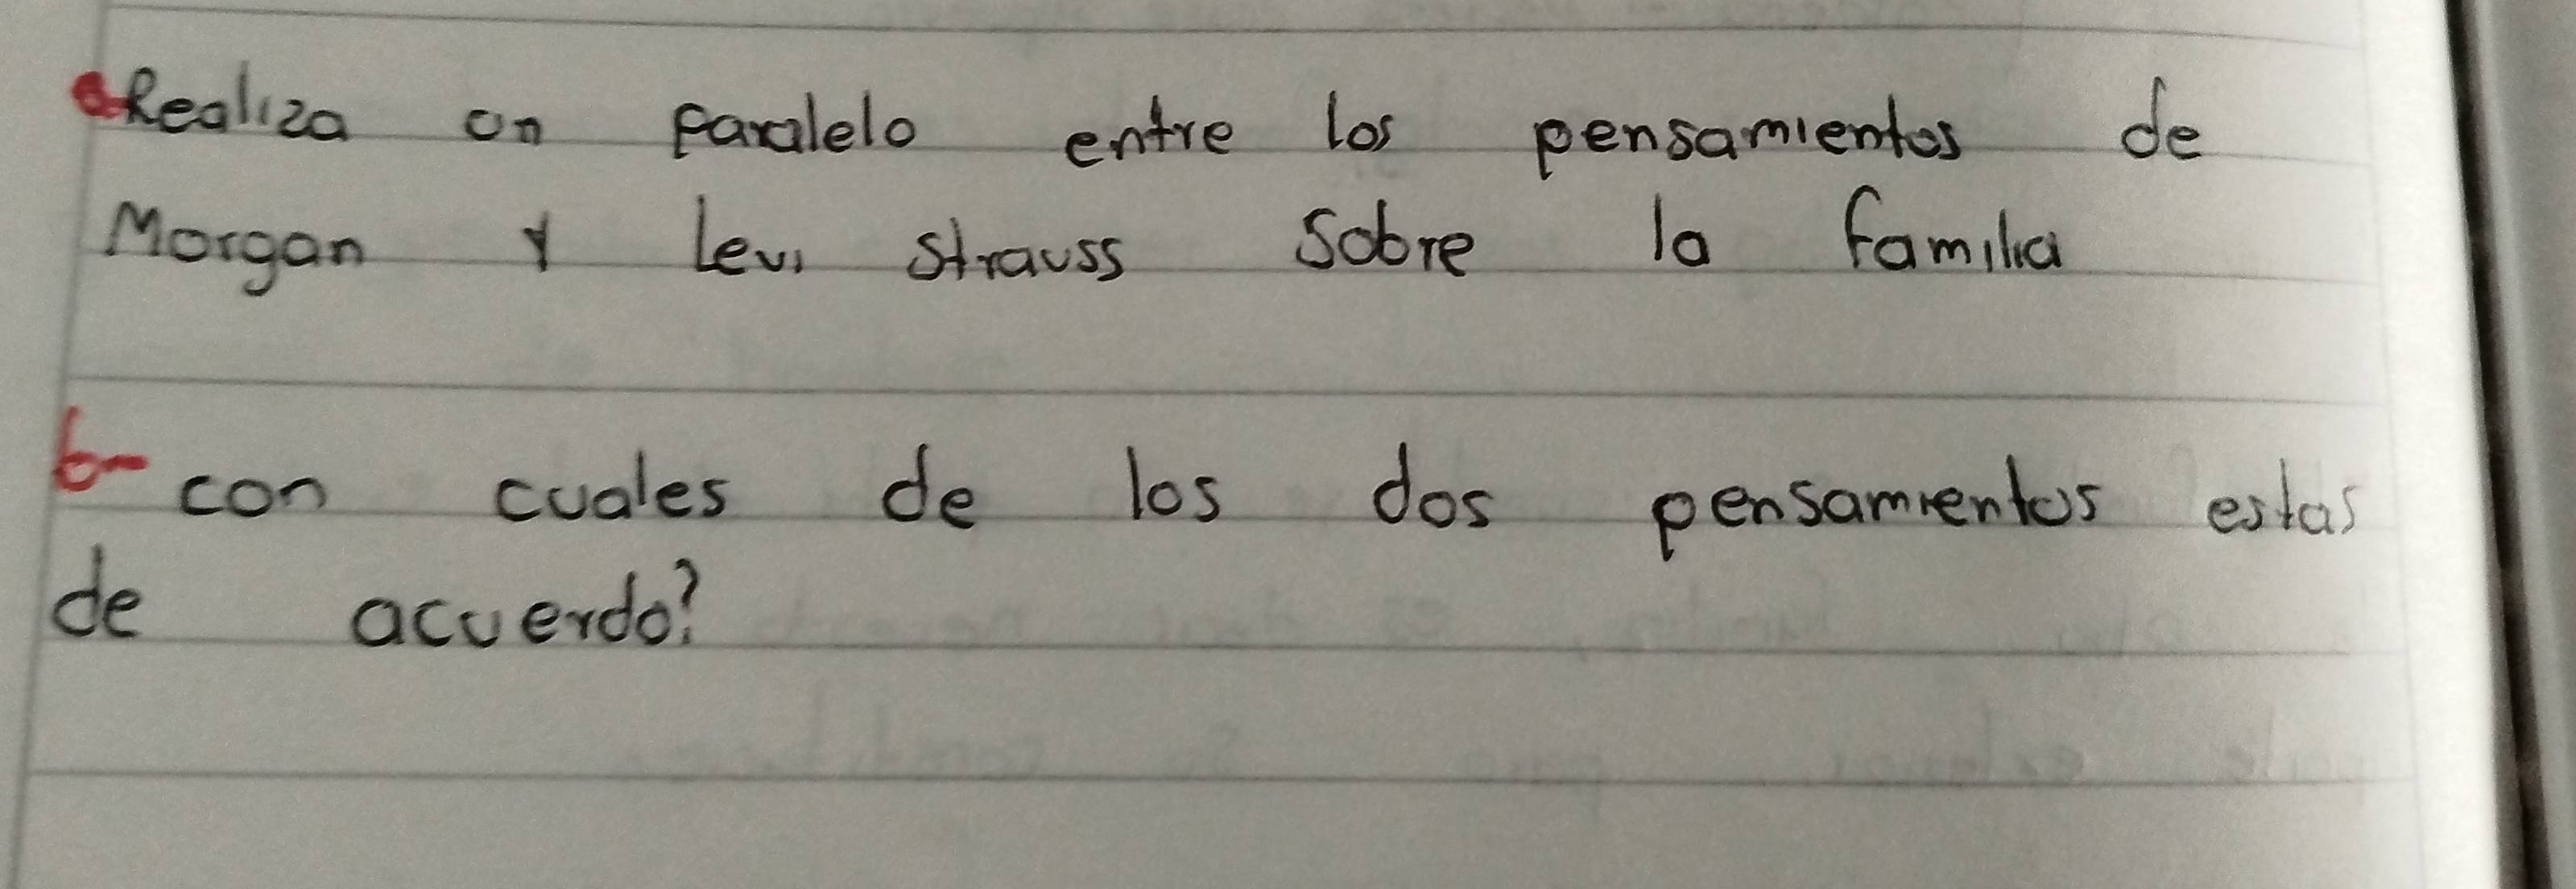 a-Realiza un paralelo entre los pensamientos de
Morgan y Levi Strauss sobre la familia
b- con cuales de los dos pensamientos estas
de acuerdo?